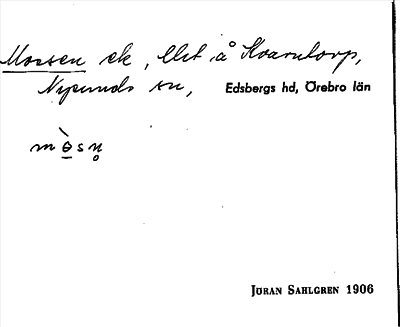 Mossen sk, llst å Kvarntorp,
Nysunds sn, Edsbergs hd, Örebro län
mò̱sn̥
JÖRAN SAHLGREN 1906